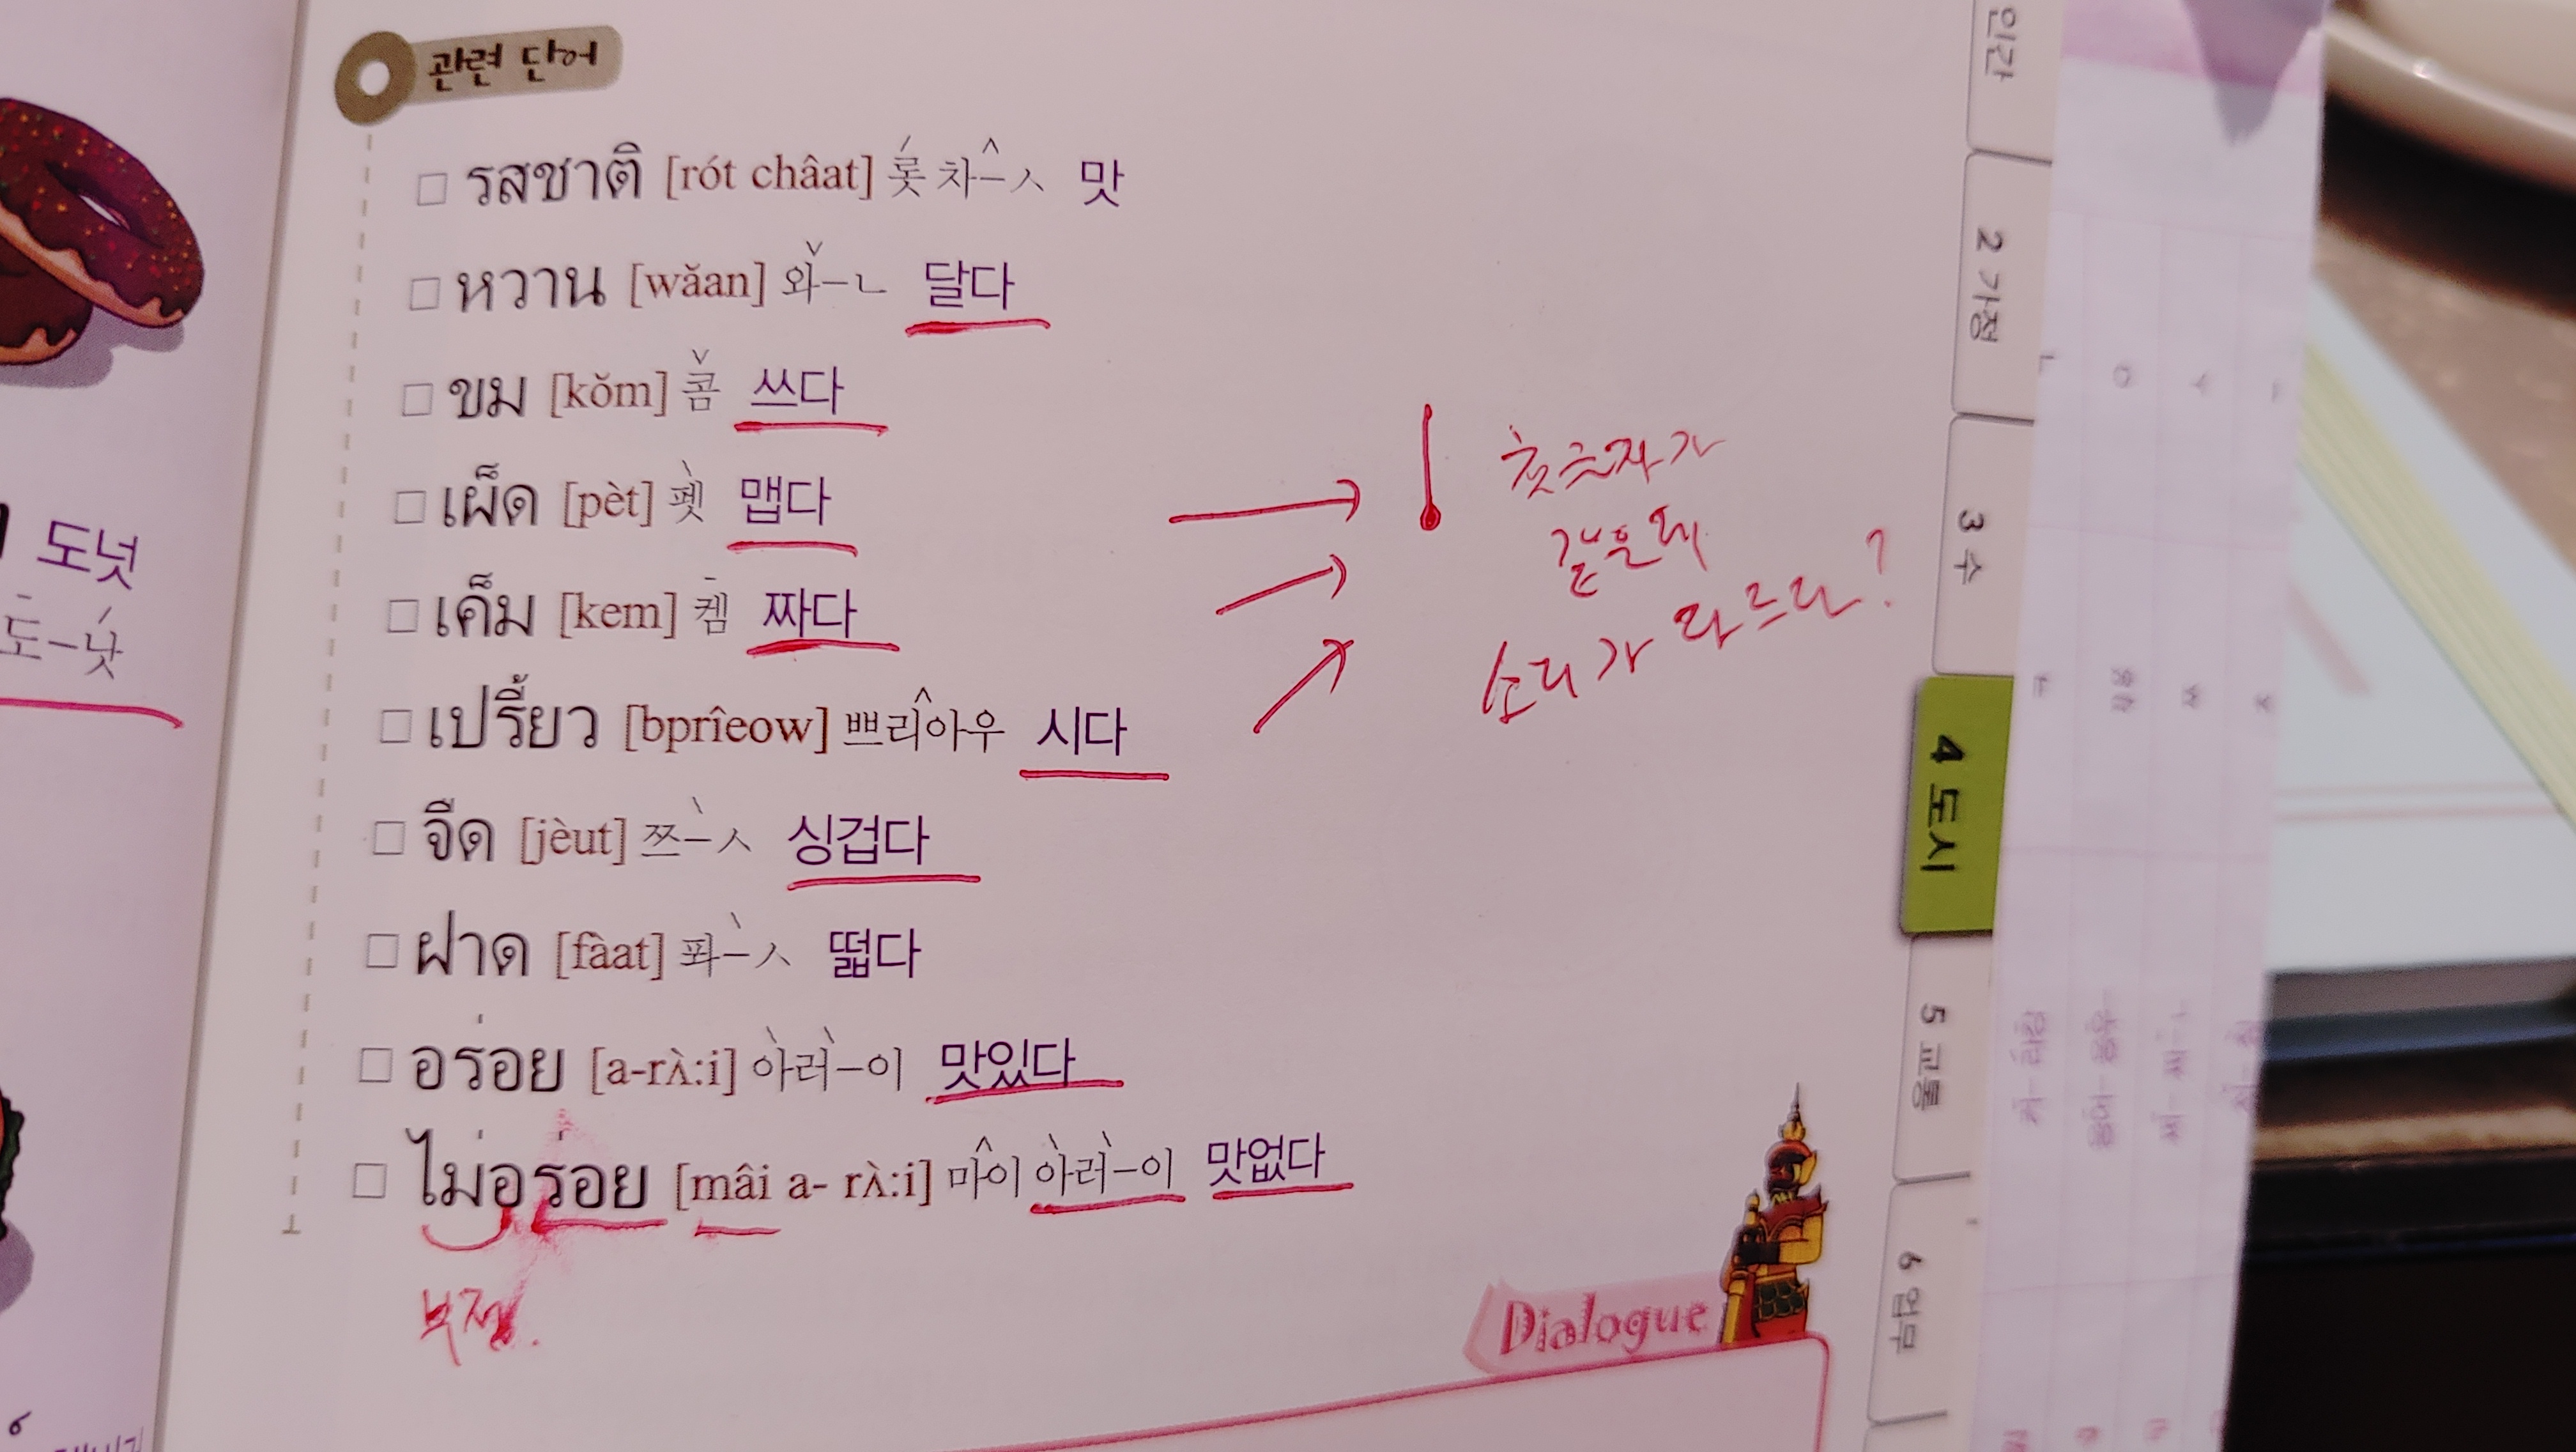 관련 단어
□ รสชาติ [rót châat] 롯 차-ㅅ 맛
□ หวาน [wăan] 와-ㄴ 달다
□ ขม [kŏm] 콤 쓰다
□ เผ็ด [pèt] 펫 맵다
□ เค็ม [kem] 켐 짜다
□ เปรี้ยว [bprîeow] 쁘리아우 시다
□ จืด [jèut] 쯔-ㅅ 싱겁다
□ ฝาด [fàat] 퐈-ㅅ 떫다
□ อร่อย [a-rʌ̀:i] 아러-이 맛있다
□ ไม่อร่อย [mâi a- rʌ̀:i] 마이 아러-이 맛없다
첫글자가
같은데
소리가 다르다?
부정.
Dialogue
도넛
도-낫
인간
2 가정
3 수
4 도시
5 교통
6 업무